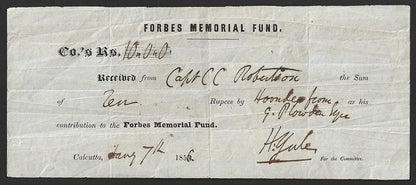 FORBES MEMORIAL FUND.
Co.'s Rs. 10.0.0
Received from Capt CC Robertson the Sum
of Ten Rupees by Hoondee from as his
G. Plowden Esqre
contribution to the Forbes Memorial Fund.
H. Yule
Calcutta, Jany 7th 1856 For the Committee.